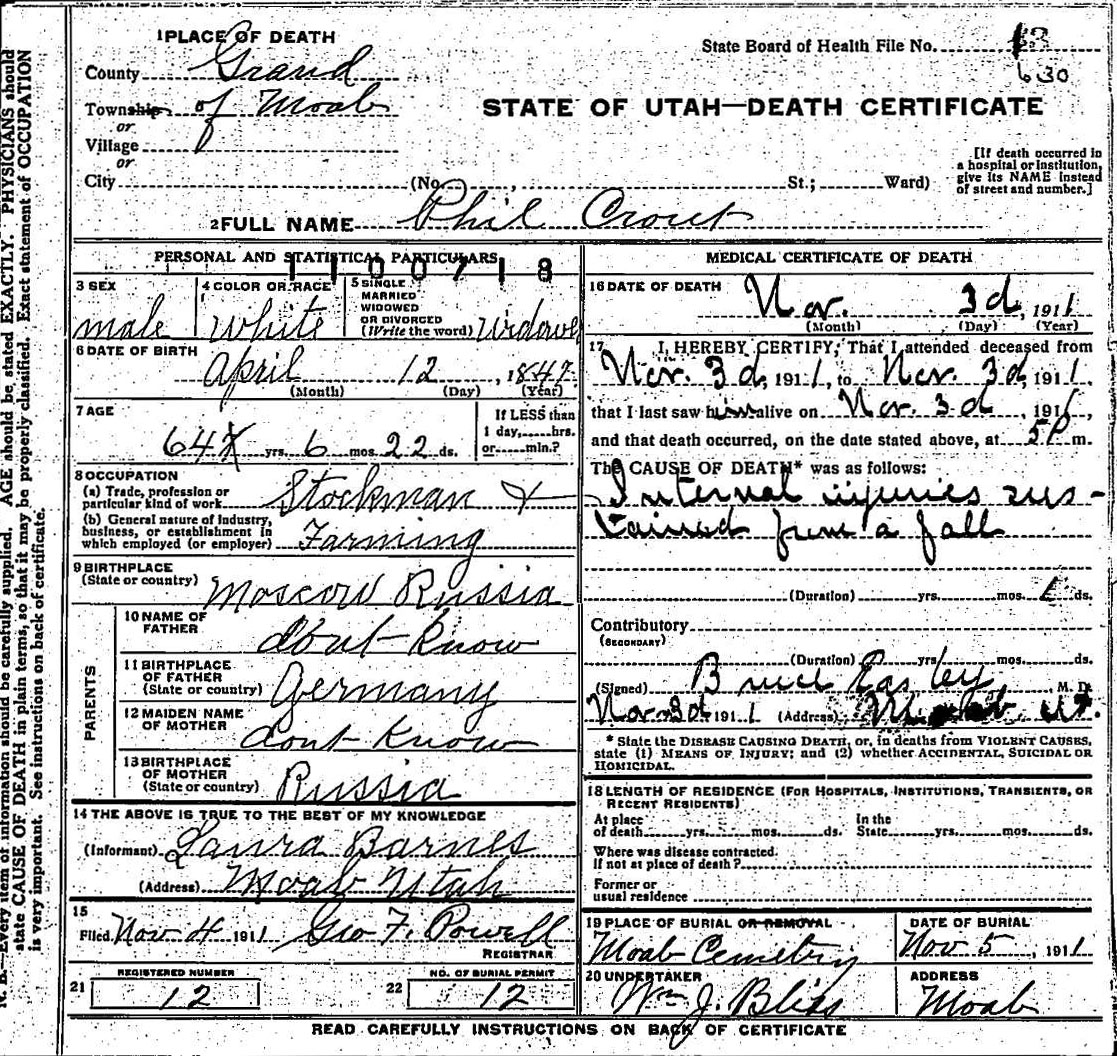 1 PLACE OF DEATH
County Grand
Township of Moab
or
Village
or
City (No. , St.; Ward)
State Board of Health File No. 13
630
STATE OF UTAH—DEATH CERTIFICATE
[If death occurred in
a hospital or institution,
give its NAME instead
of street and number.]
2 FULL NAME Phil Crout
PERSONAL AND STATISTICAL PARTICULARS
1100718
3 SEX
male
4 COLOR OR RACE
White
5 SINGLE
MARRIED
WIDOWED
OR DIVORCED
(Write the word) Widowe
6 DATE OF BIRTH
April 12, 1847.
(Month) (Day) (Year)
7 AGE
64 yrs. 6 mos. 22 ds.
If LESS than
1 day,......hrs.
or......min.?
8 OCCUPATION
(a) Trade, profession or
particular kind of work Stockman &
(b) General nature of industry,
business, or establishment in
which employed (or employer) Farming
9 BIRTHPLACE
(State or country) Moscow Russia
PARENTS
10 NAME OF
FATHER dont Know
11 BIRTHPLACE
OF FATHER
(State or country) Germany
12 MAIDEN NAME
OF MOTHER dont Know
13 BIRTHPLACE
OF MOTHER
(State or country) Russia
14 THE ABOVE IS TRUE TO THE BEST OF MY KNOWLEDGE
(Informant) Laura Barnes
(Address) Moab Utah
15
Filed Nov 4 1911 Geo F. Powell
REGISTRAR
21 REGISTERED NUMBER
12
22 NO. OF BURIAL PERMIT
12
MEDICAL CERTIFICATE OF DEATH
16 DATE OF DEATH
Nov. 3d, 1911
(Month) (Day) (Year)
17 I HEREBY CERTIFY, That I attended deceased from
Nov. 3d, 1911, to Nov. 3d, 1911,
that I last saw him alive on Nov. 3d, 1911,
and that death occurred, on the date stated above, at 5P m.
The CAUSE OF DEATH* was as follows:
Internal injuries sus-
tained from a fall
(Duration) yrs. mos. ds.
Contributory
(SECONDARY)
(Duration) yrs. mos. ds.
(Signed) Bruce Easley M. D.
Nov. 3d, 1911 (Address) Moab, Ut.
* State the DISEASE CAUSING DEATH, or, in deaths from VIOLENT CAUSES,
state (1) MEANS OF INJURY; and (2) whether ACCIDENTAL, SUICIDAL OR
HOMICIDAL.
18 LENGTH OF RESIDENCE (FOR HOSPITALS, INSTITUTIONS, TRANSIENTS, OR
RECENT RESIDENTS)
At place
of death yrs. mos. ds.
In the
State yrs. mos. ds.
Where was disease contracted.
if not at place of death?
Former or
usual residence
19 PLACE OF BURIAL OR REMOVAL
Moab Cemetry
DATE OF BURIAL
Nov 5, 1911
20 UNDERTAKER
Wm J. Bliss
ADDRESS
Moab
READ CAREFULLY INSTRUCTIONS ON BACK OF CERTIFICATE
N. B.—Every item of information should be carefully supplied. AGE should be stated EXACTLY. PHYSICIANS should
state CAUSE OF DEATH in plain terms, so that it may be properly classified. Exact statement of OCCUPATION
is very important. See instructions on back of certificate.